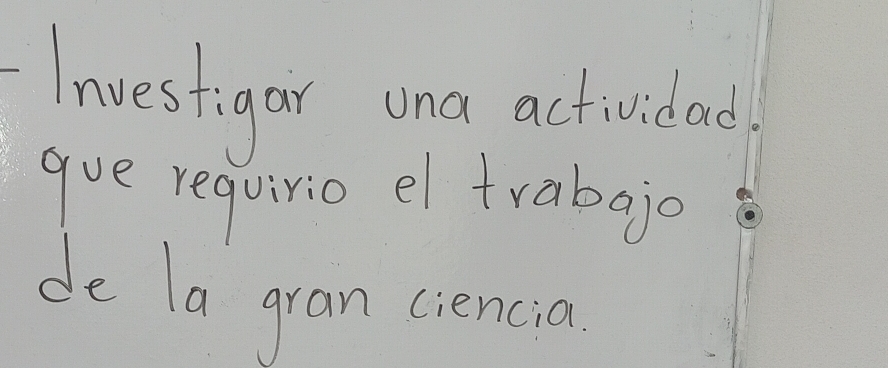 - Investigar una actividad
que requirio el trabajo
de la gran ciencia.